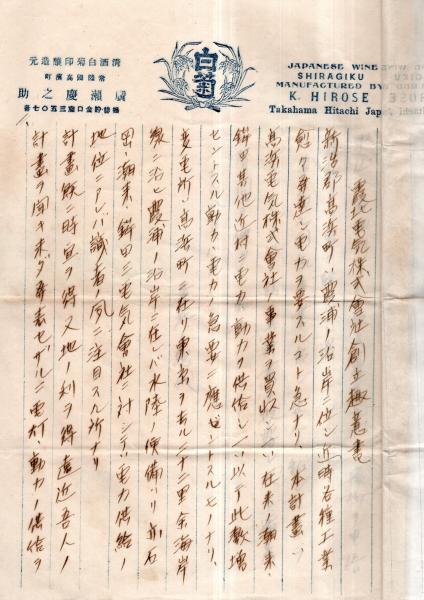 清酒白菊印醸造元
常陸國高濱町
廣瀨慶之助
振替貯金口座三五〇七番
白菊
JAPANESE WINE
SHIRAGIKU
MANUFACTURED BY
K. HIROSE
Takahama Hitachi Jap
霞北電気株式會社創立趣意書
新治郡高浜町ハ霞浦ノ沿岸ニ位シ近時各種工業
愈々発達シ電力ヲ要スルコト急ナリ、本計畫ハ
高浜電気株式會社ノ事業ヲ買収シ在来ノ潮来、
鉾田其他近村ニ電力動力ヲ供給シ以テ此数増
セントスル動力、電力ノ急要ニ應ゼントスルモノナリ、
変電所ハ高浜町ニ在リ東京ヲ去ル二十二里余海岸
線ニ沿ヒ霞浦ノ沿岸ニ在レバ水陸ノ便備ハリ
岡、潮来、鉾田ニ電気會社ニ計シテハ電力供給ノ
地位ニアレバ識者ノ夙ニ注目スル所ナリ
計畫既ニ時宜ヲ得又地ノ利ヲ得遠近吾人ノ
計畫ヲ聞キ未ダ発表セザルニ電灯、動力ノ供給ヲ